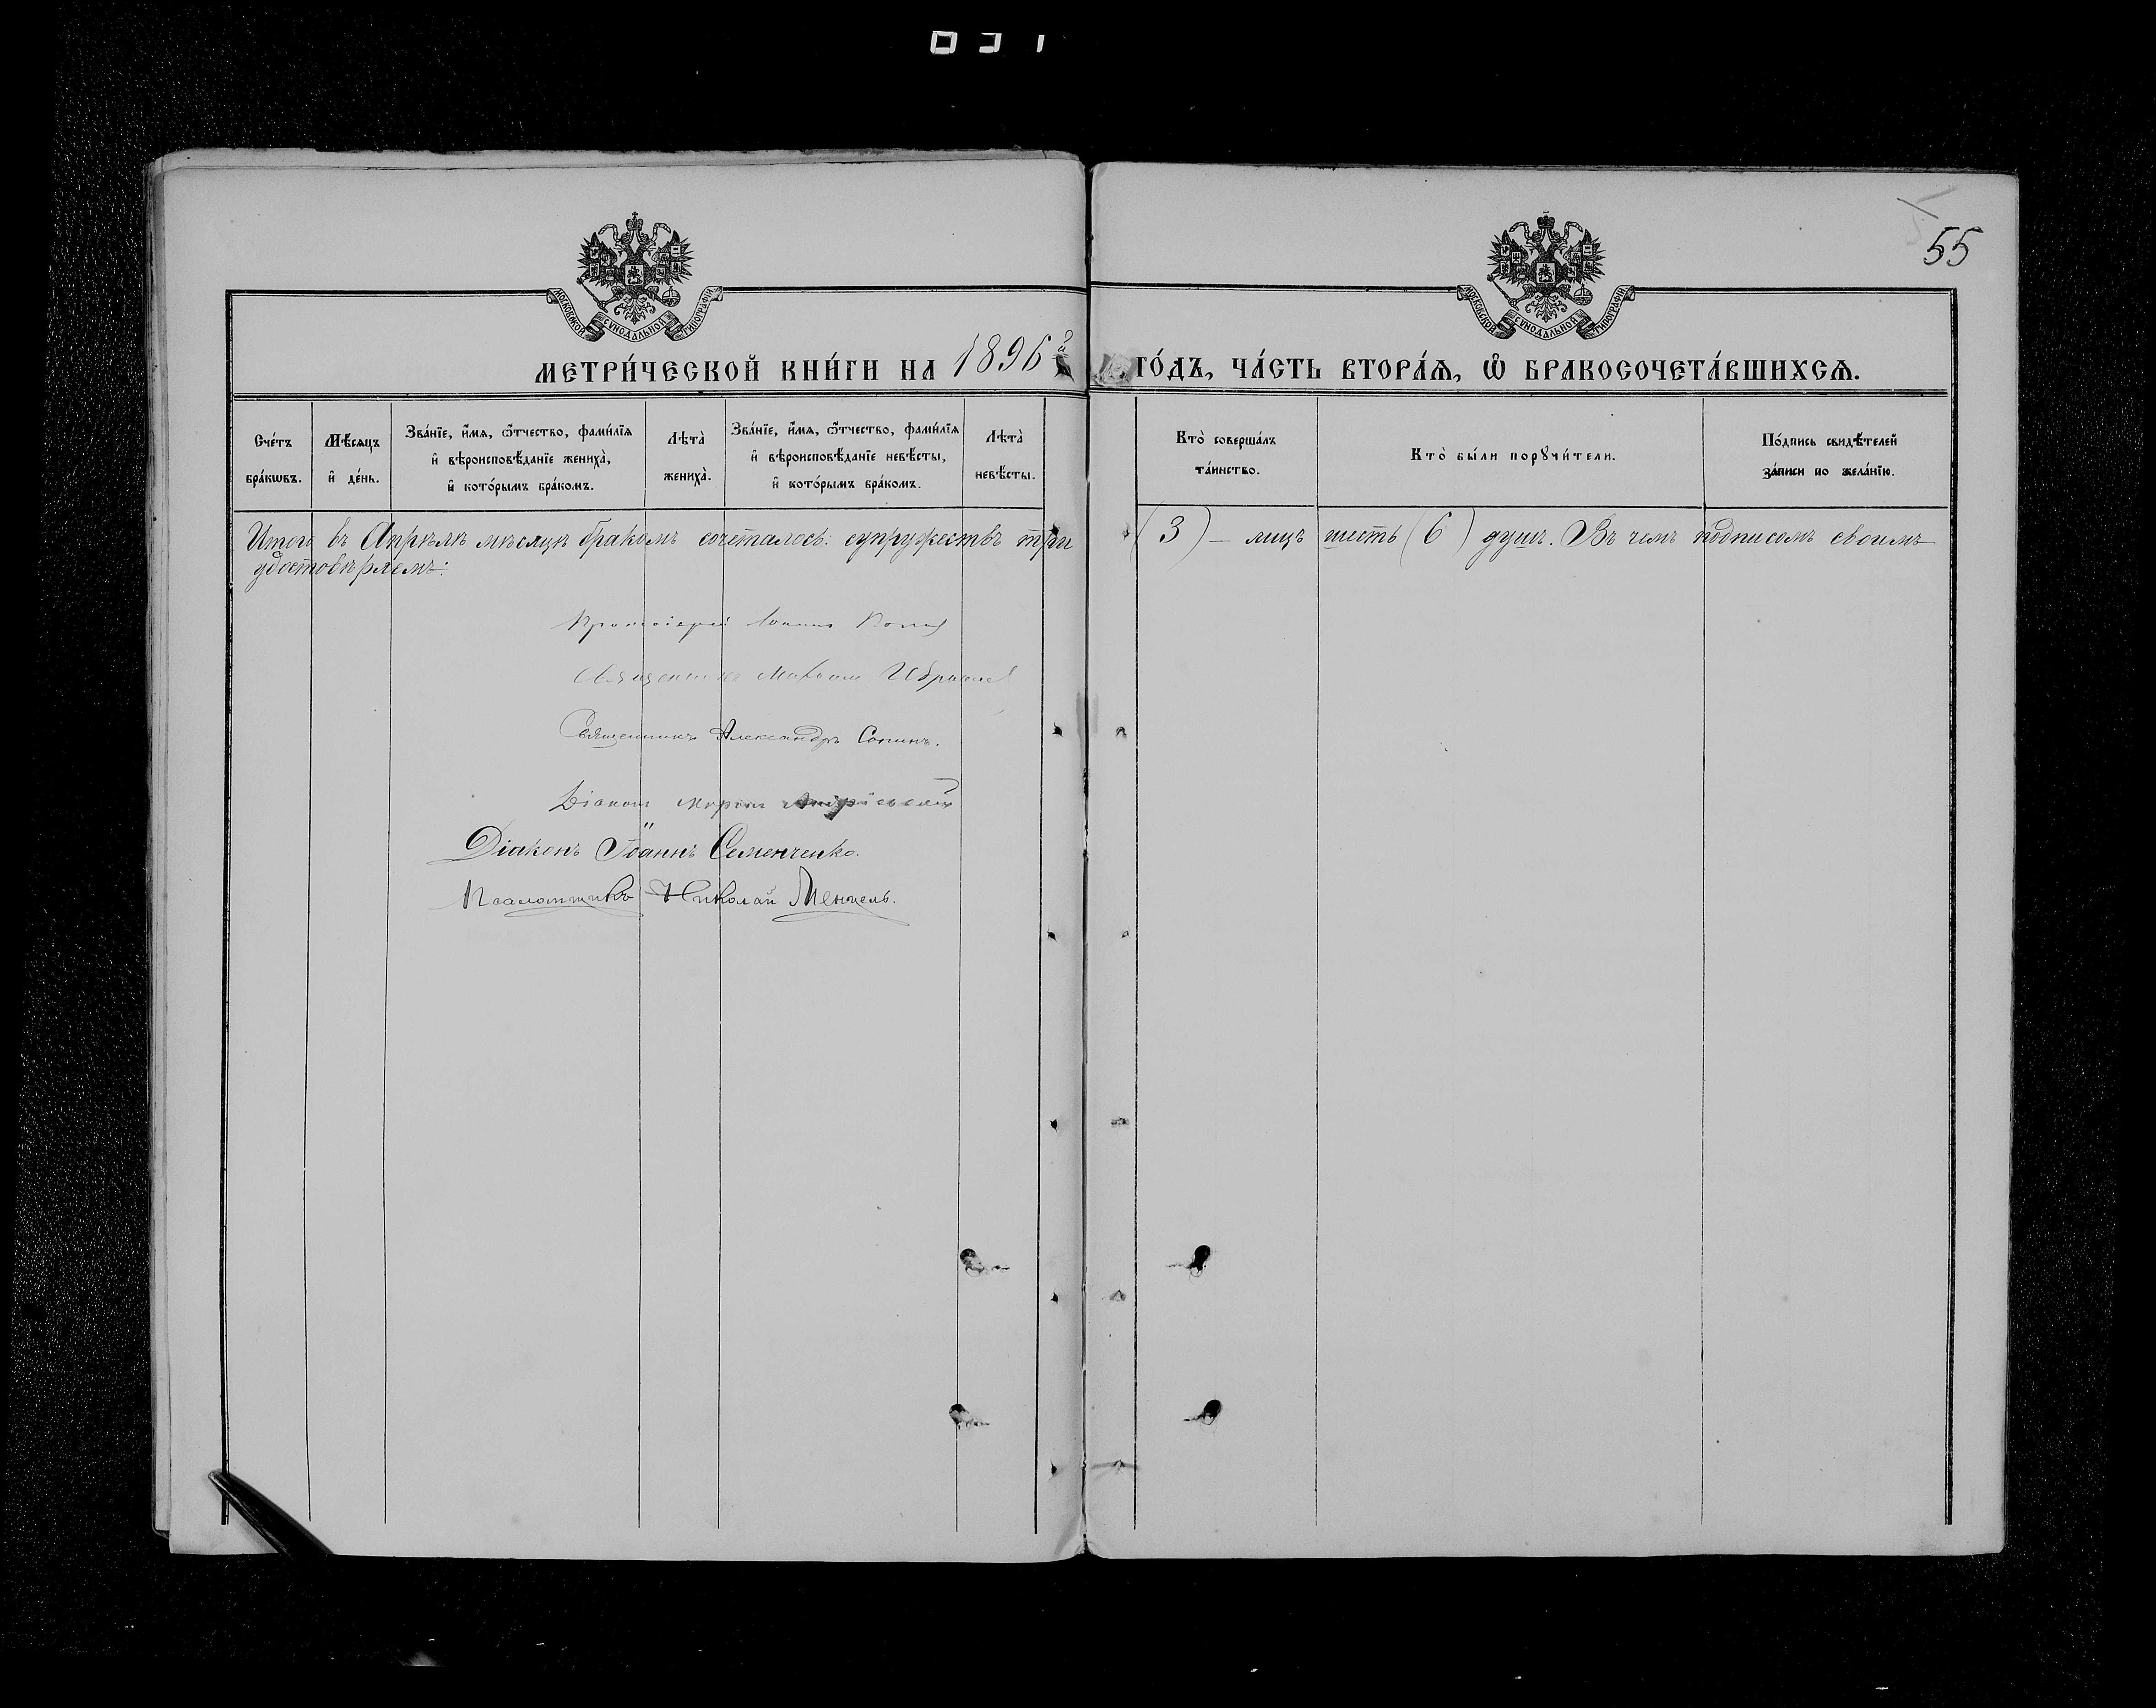 55
МОСКОВСКОЙ СѴНОДАЛЬНОЙ ТИПОГРАФІИ
МОСКОВСКОЙ СѴНОДАЛЬНОЙ ТИПОГРАФІИ
МЕТРИ́ЧЕСКОЙ КНИ́ГИ НА 1896й ГО́ДЪ, ЧА́СТЬ ВТОРА́Ѧ, Ѽ БРАКОСОЧЕТА́ВШИХСѦ.
Сче́тъ бра́кѡвъ.
Мѣ́сѧцъ и҆ де́нь.
Зва́нїе, и҆́мѧ, ѻ҆́тчество, фами́лїѧ и҆ вѣроисповѣ́данїе жениха̀, и҆ кото́рымъ бра́комъ.
Лѣта̀ жениха̀.
Зва́нїе, и҆́мѧ, ѻ҆́тчество, фами́лїѧ и҆ вѣроисповѣ́данїе невѣ́сты, и҆ кото́рымъ бра́комъ.
Лѣта̀ невѣ́сты.
Кто̀ соверша́лъ та́инство.
Кто̀ бы́ли порꙋчи́тели.
По́дпись свидѣ́телей за́писи по жела́нїю.
Итого въ Апрѣлѣ мѣсяцѣ бракомъ сочеталось: супружествъ три (3) – лицъ шесть (6) душъ. Въ чемъ подписомъ своимъ
удостовѣряемъ:
Протоіерей Іоаннъ
Священникъ Михаилъ
Священникъ Александръ Сапинъ.
Діаконъ
Діаконъ Іоаннъ Семенченко.
Псаломщикъ Николай Менжель.